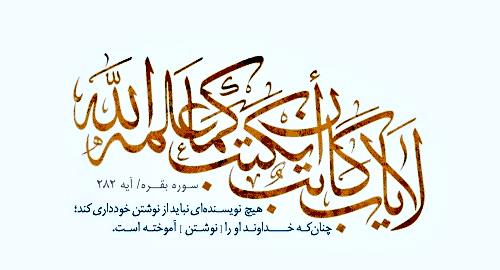 لا یأب کاتب أن یکتب کما علمه الله
سوره بقـره/ آیه ۲۸۲
هیچ نویسنده‌ای نباید از نوشتن خودداری کند؛
چنان‌که خـــداوند او را [ نوشتن ] آموختـه است.